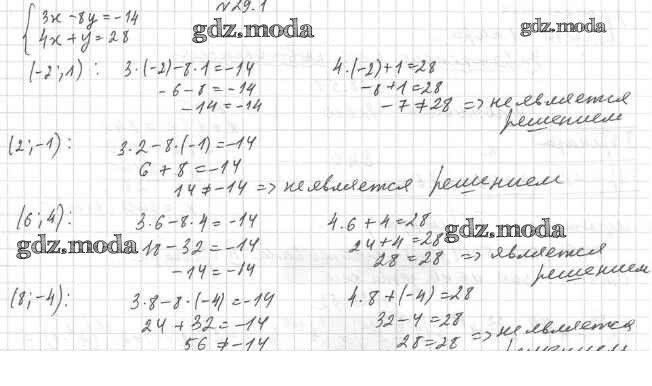 №29.1
{ 3x - 8y = -14
4x + y = 28
gdz.moda
gdz.moda
(-2; 1): 3·(-2)-8·1=-14 4·(-2)+1=28
-6-8=-14 -8+1=28
-14=-14 -7≠28 => не является
решением
(2; -1): 3·2-8·(-1)=-14
6+8=-14
14≠-14 => не является решением
(6; 4): 3·6-8·4=-14 4·6+4=28
gdz.moda 18-32=-14 24+4=28 gdz.moda
-14=-14 28=28 => является
решением
(8; -4): 3·8-8·(-4)=-14 4·8+(-4)=28
24+32=-14 32-4=28
56≠-14 28=28 => не является
решением